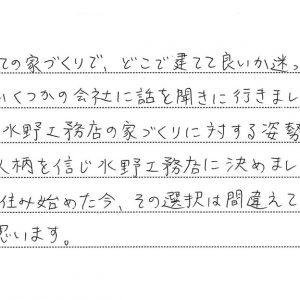 ての家づくりで、どこで建てて良いか迷っ
いくつかの会社に話を聞きに行きまし
水野工務店の家づくりに対する姿勢
人柄を信じ水野工務店に決めまし
住み始めた今、その選択は間違えて
思います。